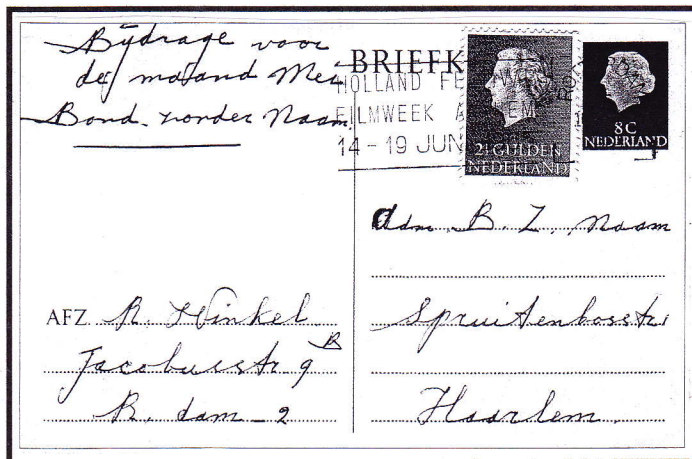 Bijdrage voor
de maand Mei
Bond zonder Naam
BRIEFK
HOLLAND FE
FILMWEEK A EM
14-19 JUN
2½ GULDEN
NEDERLAND
8C
NEDERLAND
Adm. B. Z. Naam
Spruitenbosstr.
Haarlem.
AFZ. R. Winkel
Jacobusstr 9 B
R. dam - 2